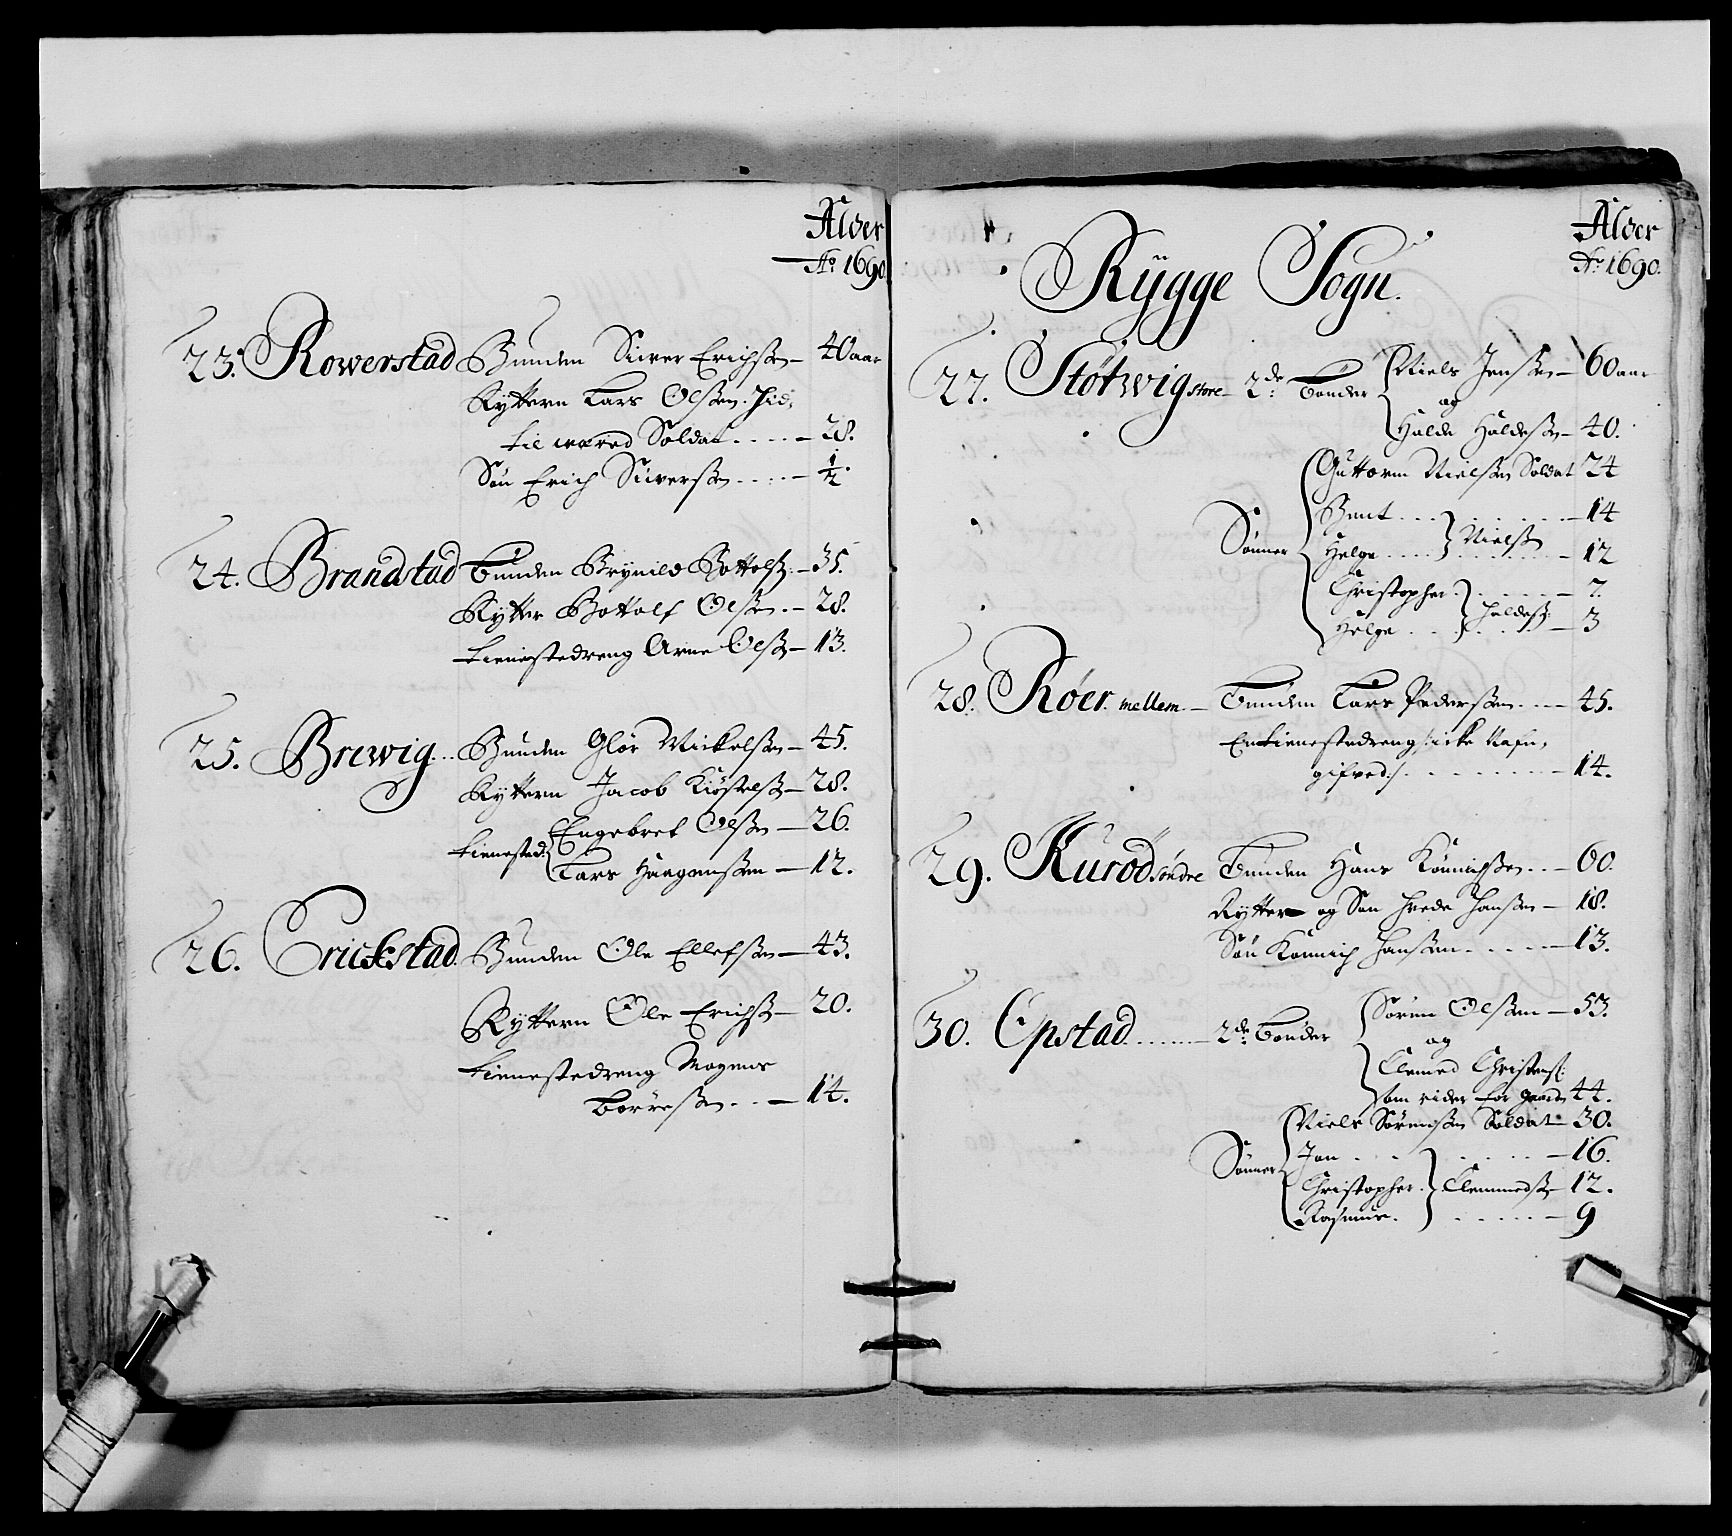 Alder
Ao 1690
23. Rowerstad Bunden Siver Erichsen – 40 aar
Rytteren Lars Olsen. Hid,
til wæred Soldat . . . . – 28.
Søn Erich Siversen . . . . – 1/2.
24. Brandstad Bunden Brynild Bottols: – 35.
Rytter Bottolf Olsen . – 28.
tienestedreng Arne Ols – 13.
25. Brewig . . Bunden Glør Mickelsen – 45.
Rytteren Jacob Kiøstels – 28.
tienested: Engebret Olsen – 26.
Lars Haagensen – 12.
26. Erickstad Bunden Ole Ellefsen – 43.
Rytteren Ole Erichs – 20.
tienestedreng Mogens
Børresen . . – 14.
Alder
Ao 1690.
Rÿgge Sogn.
27. Støtwig store – 2de Bønder Niels Jensen – 60 aar
og
Halde Haldesen – 40.
Guttorm Nielsen Soldat 24
Sønner Bent . . . . . . . – 14
Helge . . . . Niels . . . – 12
Christopher . . . . . – 7.
Helge . . . Haldes: . . – 3
28. Røer mellem – Bunden Lars Pedersen . . . – 45.
En tienestedreng /: icke Nafn,
gifved :/ . . . . . . . . – 14.
29. Kurød søndre Bunden Hans Kønnichsen . . – 60.
Rytter og Søn Frede Hansen – 18.
Søn Kønnich Hansen . . . . – 13.
30. Opstad . . . . . . . – 2de Bønder Søren Olsen – 53.
og
Clemed Christens:
som rider for gaarden 44.
Niels Sørensen Soldat – 30.
Sønner Jan . . . . . . . – 16.
Christopher . Clemmeds – 12.
Rasmus . . . . . . – 9